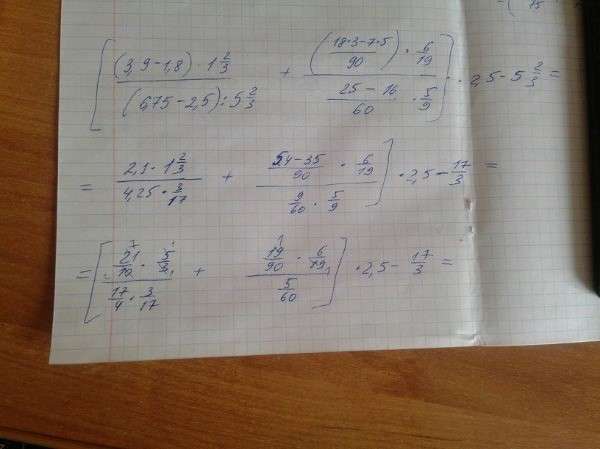 [ (3,9-1,8) · 1 2/3 / (6,75-2,5) : 5 2/3 + (18·3-7·5 / 90) · 6/19 / 25-16 / 60 · 5/9 ] · 2,5 - 5 2/3 =
= 2,1 · 1 2/3 / 4,25 · 3/17 + 54-35 / 90 · 6/19 / 9/60 · 5/9 ] · 2,5 - 17/3 =
= [ 21/10 · 5/3 / 17/4 · 3/17 + 19/90 · 6/19 / 5/60 ] · 2,5 - 17/3 =